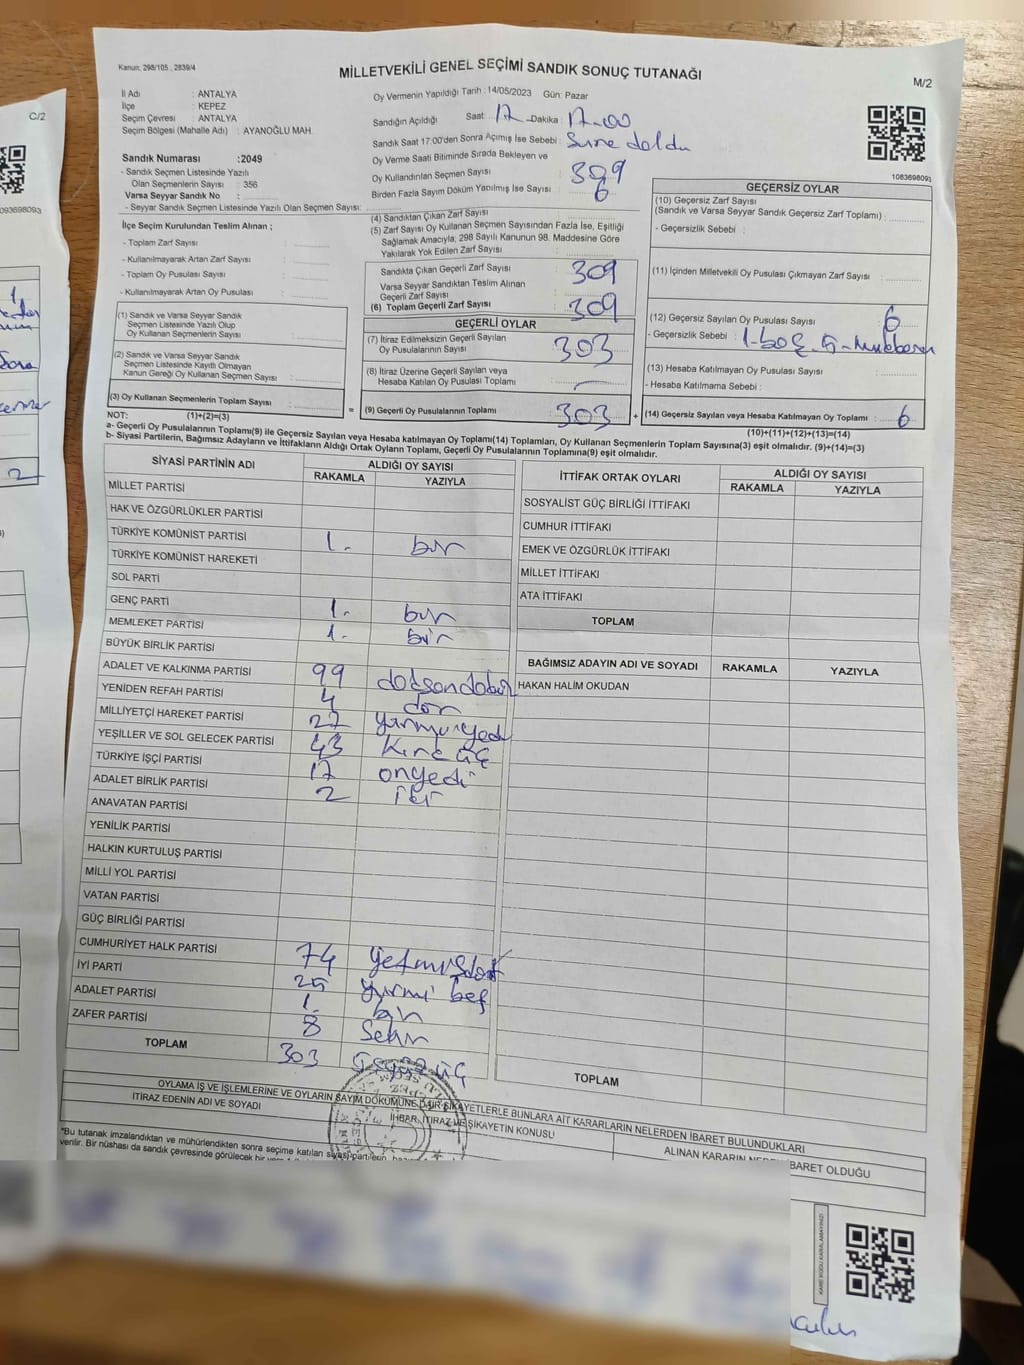 Kanun; 298/105 , 2839/4
MİLLETVEKİLİ GENEL SEÇİMİ SANDIK SONUÇ TUTANAĞI
M/2
C/2
İl Adı : ANTALYA
İlçe : KEPEZ
Seçim Çevresi : ANTALYA
Seçim Bölgesi (Mahalle Adı) : AYANOĞLU MAH.
Sandık Numarası :2049
- Sandık Seçmen Listesinde Yazılı
Olan Seçmenlerin Sayısı : 356
Varsa Seyyar Sandık No :
- Seyyar Sandık Seçmen Listesinde Yazılı Olan Seçmen Sayısı:
Oy Vermenin Yapıldığı Tarih : 14/05/2023 Gün: Pazar
Sandığın Açıldığı Saat: 17 Dakika : 17-00
Sandık Saat 17:00'den Sonra Açımış İse Sebebi : Süre doldu
Oy Verme Saati Bitiminde Sırada Bekleyen ve
Oy Kullandırılan Seçmen Sayısı : 309
Birden Fazla Sayım Döküm Yapılmış İse Sayısı : 6
1083698091
093698093
İlçe Seçim Kurulundan Teslim Alınan ;
- Toplam Zarf Sayısı :
- Kullanılmayarak Artan Zarf Sayısı :
- Toplam Oy Pusulası Sayısı :
- Kullanılmayarak Artan Oy Pusulası :
(1) Sandık ve Varsa Seyyar Sandık
Seçmen Listesinde Yazılı Olup
Oy Kullanan Seçmenlerin Sayısı :
(2) Sandık ve Varsa Seyyar Sandık
Seçmen Listesinde Kayıtlı Olmayan
Kanun Gereği Oy Kullanan Seçmen Sayısı :
(3) Oy Kullanan Seçmenlerin Toplam Sayısı :
(4) Sandıktan Çıkan Zarf Sayısı :
(5) Zarf Sayısı Oy Kullanan Seçmen Sayısından Fazla İse, Eşitliği
Sağlamak Amacıyla; 298 Sayılı Kanunun 98. Maddesine Göre
Yakılarak Yok Edilen Zarf Sayısı :
Sandıkta Çıkan Geçerli Zarf Sayısı : 309
Varsa Seyyar Sandıktan Teslim Alınan
Geçerli Zarf Sayısı :
(6) Toplam Geçerli Zarf Sayısı : 309
GEÇERLİ OYLAR
(7) İtiraz Edilmeksizin Geçerli Sayılan
Oy Pusulalarının Sayısı : 303
(8) İtiraz Üzerine Geçerli Sayılan veya
Hesaba Katılan Oy Pusulası Toplamı : —
= (9) Geçerli Oy Pusulalarının Toplamı : 303 +
GEÇERSİZ OYLAR
(10) Geçersiz Zarf Sayısı
(Sandık ve Varsa Seyyar Sandık Geçersiz Zarf Toplamı) :
- Geçersizlik Sebebi :
(11) İçinden Milletvekili Oy Pusulası Çıkmayan Zarf Sayısı :
(12) Geçersiz Sayılan Oy Pusulası Sayısı : 6
- Geçersizlik Sebebi : 1-boş 5-
(13) Hesaba Katılmayan Oy Pusulası Sayısı :
- Hesaba Katılmama Sebebi :
(14) Geçersiz Sayılan veya Hesaba Katılmayan Oy Toplamı : 6
NOT: (1)+(2)=(3)
(10)+(11)+(12)+(13)=(14)
a- Geçerli Oy Pusulalarının Toplamı(9) ile Geçersiz Sayılan veya Hesaba katılmayan Oy Toplamı(14) Toplamları, Oy Kullanan Seçmenlerin Toplam Sayısına(3) eşit olmalıdır. (9)+(14)=(3)
b- Siyasi Partilerin, Bağımsız Adayların ve İttifakların Aldığı Ortak Oyların Toplamı, Geçerli Oy Pusulalarının Toplamına(9) eşit olmalıdır.
SİYASİ PARTİNİN ADI ALDIĞI OY SAYISI
RAKAMLA YAZIYLA
MİLLET PARTİSİ
HAK VE ÖZGÜRLÜKLER PARTİSİ
TÜRKİYE KOMÜNİST PARTİSİ 1. bir
TÜRKİYE KOMÜNİST HAREKETİ
SOL PARTİ
GENÇ PARTİ 1. bir
MEMLEKET PARTİSİ 1. bir
BÜYÜK BİRLİK PARTİSİ
ADALET VE KALKINMA PARTİSİ 99 doksandokuz
YENİDEN REFAH PARTİSİ 4 dör
MİLLİYETÇİ HAREKET PARTİSİ 27 yirmiyedi
YEŞİLLER VE SOL GELECEK PARTİSİ 43 Kırk üç
TÜRKİYE İŞÇİ PARTİSİ 17 onyedi
ADALET BİRLİK PARTİSİ 2 iki
ANAVATAN PARTİSİ
YENİLİK PARTİSİ
HALKIN KURTULUŞ PARTİSİ
MİLLİ YOL PARTİSİ
VATAN PARTİSİ
GÜÇ BİRLİĞİ PARTİSİ
CUMHURİYET HALK PARTİSİ 74 yetmişdört
İYİ PARTİ 25 yirmi beş
ADALET PARTİSİ 1. bir
ZAFER PARTİSİ 8 Sekiz
TOPLAM 303 üçyüz üç
İTTİFAK ORTAK OYLARI ALDIĞI OY SAYISI
RAKAMLA YAZIYLA
SOSYALİST GÜÇ BİRLİĞİ İTTİFAKI
CUMHUR İTTİFAKI
EMEK VE ÖZGÜRLÜK İTTİFAKI
MİLLET İTTİFAKI
ATA İTTİFAKI
TOPLAM
BAĞIMSIZ ADAYIN ADI VE SOYADI RAKAMLA YAZIYLA
HAKAN HALİM OKUDAN
TOPLAM
OYLAMA İŞ VE İŞLEMLERİNE VE OYLARIN SAYIM DÖKÜMÜNE DAİR ŞİKAYETLERLE BUNLARA AİT KARARLARIN NELERDEN İBARET BULUNDUKLARI
İTİRAZ EDENİN ADI VE SOYADI İHBAR, İTİRAZ VE ŞİKAYETİN KONUSU ALINAN KARARIN NEDEN İBARET OLDUĞU
*Bu tutanak imzalandıktan ve mühürlendikten sonra seçime katılan siyasi partilerin
verilir. Bir nüshası da sandık çevresinde görülecek bir yere
KARE KODU KARALAMAYINIZ!